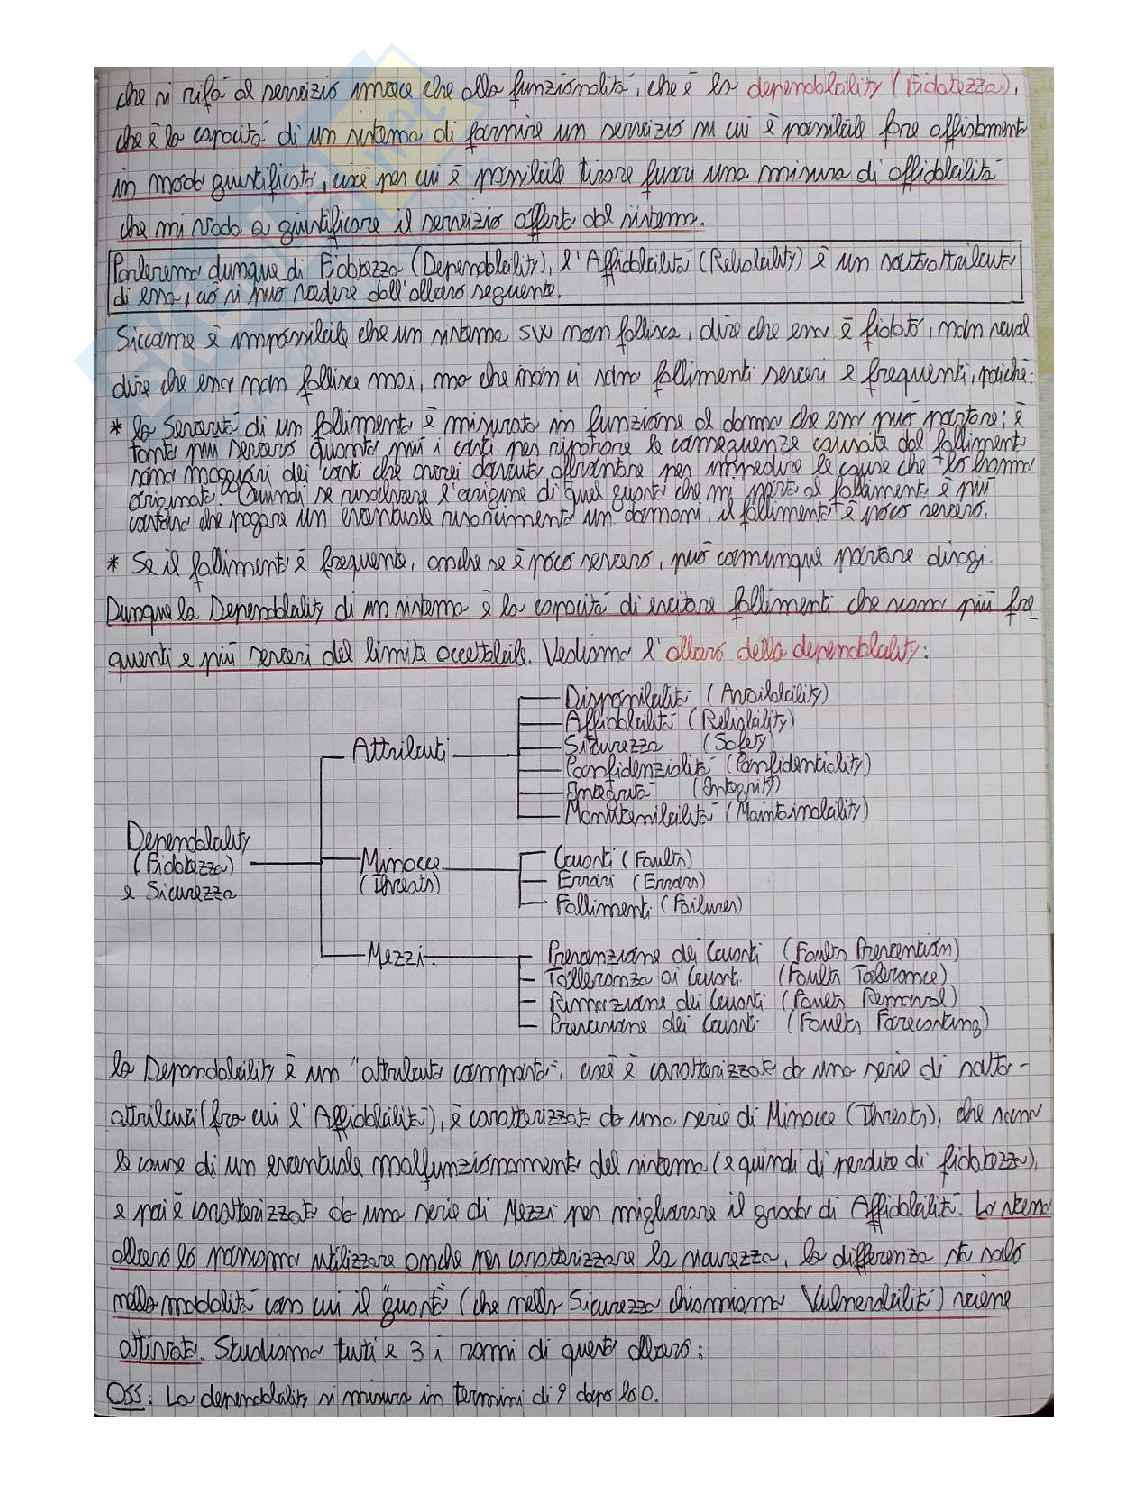 che si rifà al servizio invece che alla funzionalità, che è la dependability (Fidatezza),
che è la capacità di un sistema di fornire un servizio su cui è possibile fare affidamento
in modo giustificato, cioè per cui è possibile tirare fuori una misura di affidabilità
che mi vada a giustificare il servizio offerto dal sistema.
Parleremo dunque di Fidatezza (Dependability), l'Affidabilità (Reliability) è un sottoattributo
di essa, ciò si può vedere dall'albero seguente.
Siccome è impossibile che un sistema SW non fallisca, dire che esso è fidato, non vuol
dire che esso non fallisce mai, ma che non vi sono fallimenti severi e frequenti, poiché:
* la Severità di un fallimento è misurata in funzione al danno che esso può portare; è
tanto più severo quanto più i costi per riportare le conseguenze causate dal fallimento
sono maggiori dei costi che avrei dovuto affrontare per impedire le cause che lo hanno
originato. Quindi se risolvere l'origine di quel guasto che mi porta al fallimento è più
costoso che pagare un eventuale risarcimento un domani, il fallimento è poco severo.
* Se il fallimento è frequente, anche se è poco severo, può comunque portare disagi.
Dunque la Dependability di un sistema è la capacità di evitare fallimenti che siano più fre-
quenti e più severi del limite accettabile. Vediamo l'albero della dependability:
Dependability
(Fidatezza)
e Sicurezza
Attributi
Disponibilità (Availability)
Affidabilità (Reliability)
Sicurezza (Safety)
Confidenzialità (Confidentiality)
Integrità (Integrity)
Manutenibilità (Maintainability)
Minacce
(Threats)
Guasti (Faults)
Errori (Errors)
Fallimenti (Failures)
Mezzi
Prevenzione dei Guasti (Faults Prevention)
Tolleranza ai Guasti (Faults Tolerance)
Rimozione dei Guasti (Faults Removal)
Previsione dei Guasti (Faults Forecasting)
la Dependability è un "attributo composto", cioè è caratterizzata da una serie di sotto-
attributi (fra cui l'Affidabilità), è caratterizzata da una serie di Minacce (Threats), che sono
le cause di un eventuale malfunzionamento del sistema (e quindi di perdita di fidatezza),
e poi è caratterizzata da una serie di Mezzi per migliorare il grado di Affidabilità. Lo stesso
albero lo possiamo utilizzare anche per caratterizzare la sicurezza, la differenza sta solo
nella modalità con cui il "guasto" (che nella Sicurezza chiamiamo Vulnerabilità) viene
attivato. Studiamo tutti e 3 i rami di questo albero:
OSS: La dependability si misura in termini di 9 dopo lo 0.